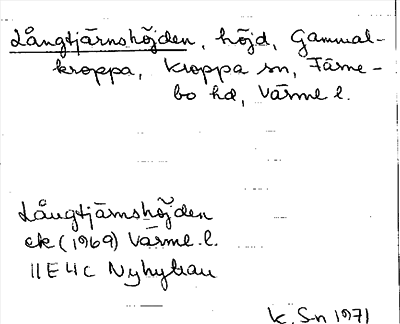 Långtjärnshöjden, höjd, Gammal-
kroppa, Kroppa sn, Färne-
bo hd, Värml.
Långtjärnshöjden
ek (1969) Värml.l.
11E4c Nyhyttan
K. Sn 1971